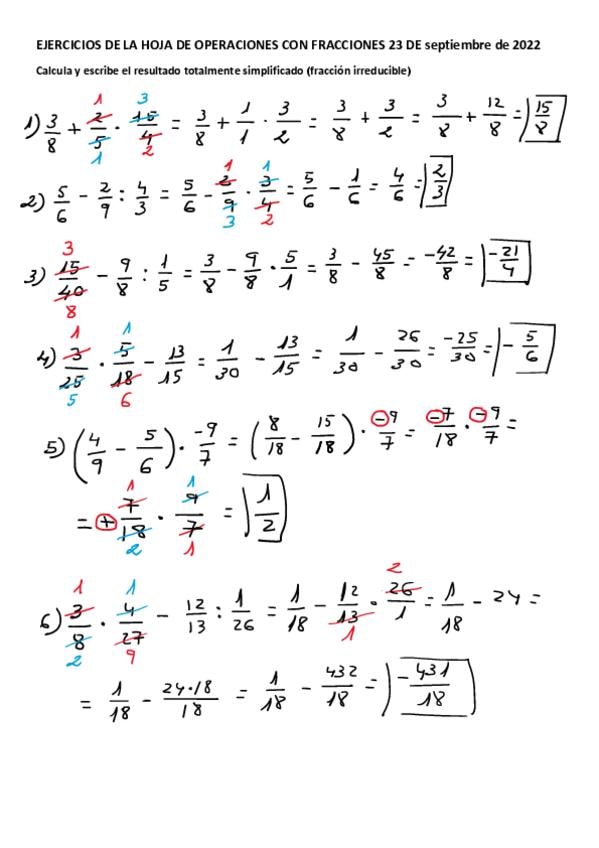 EJERCICIOS DE LA HOJA DE OPERACIONES CON FRACCIONES 23 DE septiembre de 2022
Calcula y escribe el resultado totalmente simplificado (fracción irreducible)
1) 3/8 + 2/5 · 15/4 = 3/8 + 1/1 · 3/2 = 3/8 + 3/2 = 3/8 + 12/8 = 15/8
2) 5/6 - 2/9 : 4/3 = 5/6 - 2/9 · 3/4 = 5/6 - 1/6 = 4/6 = 2/3
3) 15/40 - 9/8 : 1/5 = 3/8 - 9/8 · 5/1 = 3/8 - 45/8 = -42/8 = -21/4
4) 3/25 · 5/18 - 13/15 = 1/30 - 13/15 = 1/30 - 26/30 = -25/30 = -5/6
5) (4/9 - 5/6) · -9/7 = (8/18 - 15/18) · -9/7 = -7/18 · -9/7 =
= + 7/18 · 9/7 = 1/2
6) 3/8 · 4/27 - 12/13 : 1/26 = 1/18 - 12/13 · 26/1 = 1/18 - 24 =
= 1/18 - 24·18/18 = 1/18 - 432/18 = -431/18